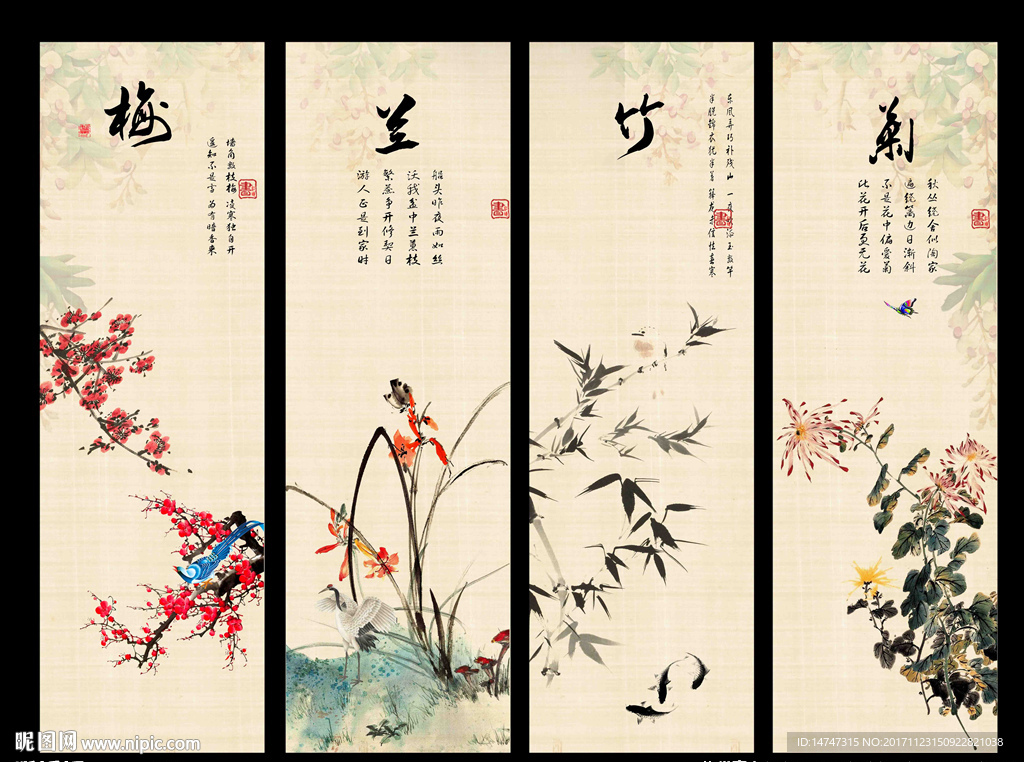 梅
墙角数枝梅 凌寒独自开
遥知不是雪 为有暗香来
兰
船头昨夜雨如丝
沃我盆中兰蕙枝
繁蕊争开修契日
游人正是到家时
竹
东风弄巧补残山 一夜吹添玉数竿
半脱锦衣犹半著 箨龙未信怯春寒
菊
秋丛绕舍似陶家
遍绕篱边日渐斜
不是花中偏爱菊
此花开后更无花
昵图网 www.nipic.com
ID:14747315 NO:20171123150922821038